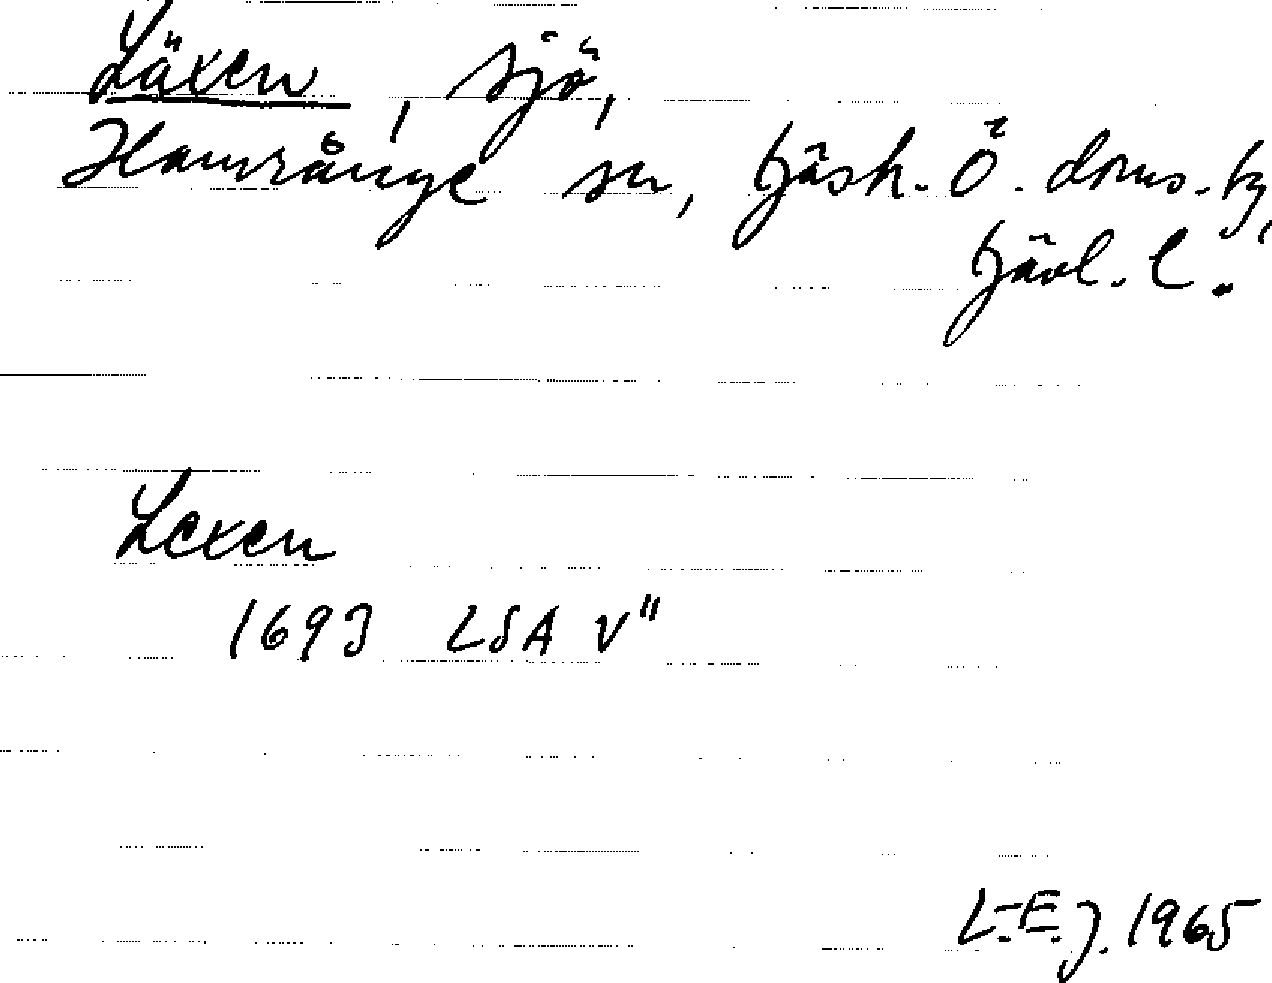 Läxen, sjö,
Hamrånge sn, Gästr. Ö. doms.tg,
Gävl. l.
Lexen
1693 LSA V"
L.E.J. 1965